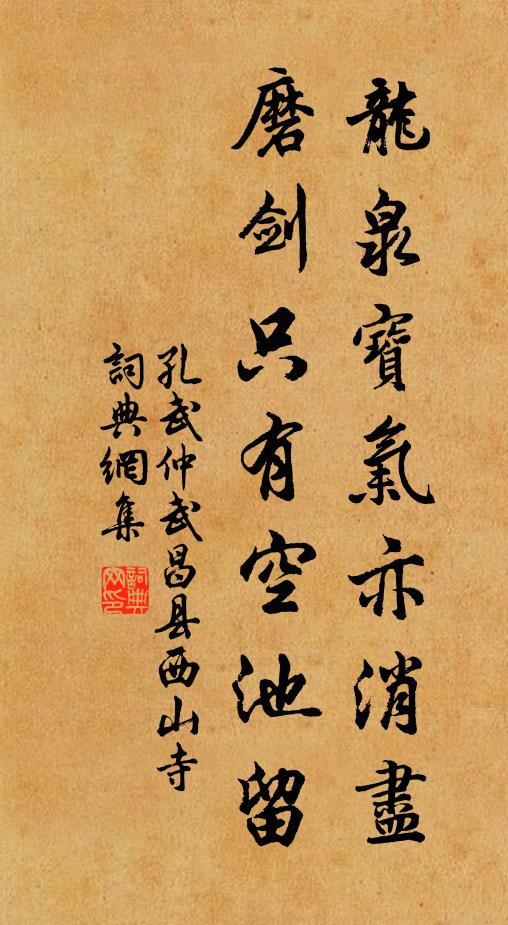 龍泉寶氣亦消盡
磨剑只有空池留
孔武仲武昌县西山寺
詞典網集
詞典网印